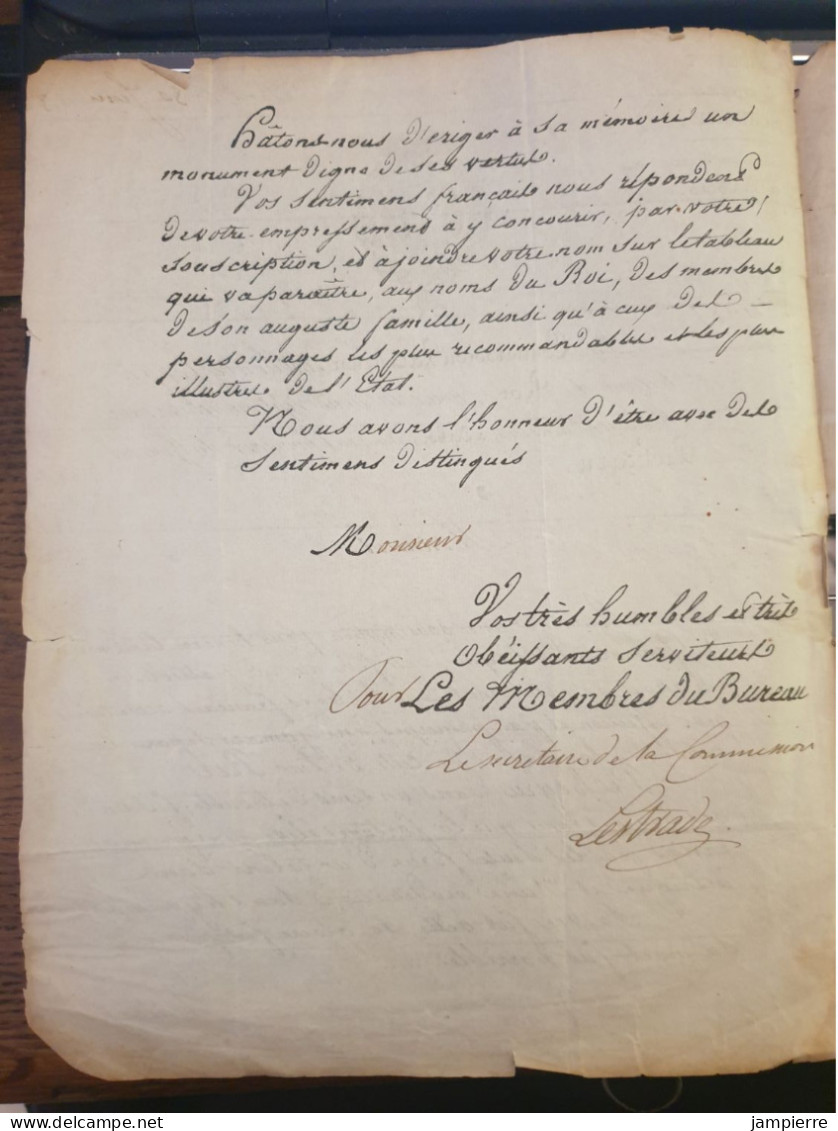 hâtons-nous d'eriger à sa mémoire un
monument digne de ses vertus.
Vos sentimens français nous répondent
de votre empressement à y concourir, par votre
souscription, et à joindre votre nom sur le tableau
qui va paraître, aux noms du Roi, des membres
de son auguste famille, ainsi qu'à eux des
personnages les plus recommandables et les plus
illustres de l'Etat.
Nous avons l'honneur d'être avec des
sentimens distingués
Monsieur
Vos très humbles et très
obéissants serviteurs
Pour Les Membres du Bureau
Le secrétaire de la Commission
Lestrade
jampierre
delcampe.net